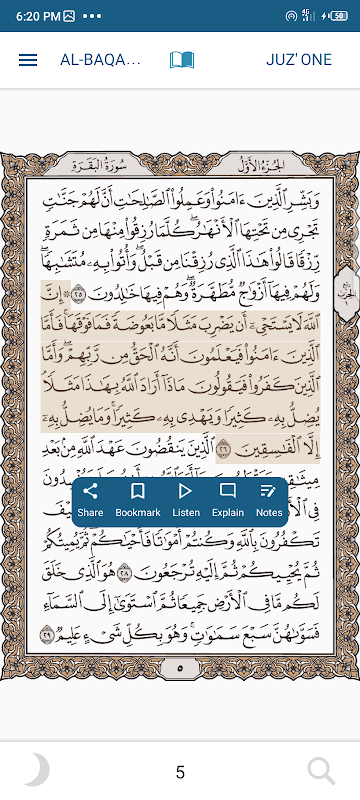 6:20 PM
4G
50
AL-BAQA...
JUZ' ONE
سُورَةُ البَقَرَةِ
الجُزءُ الأَوَّلُ
وَبَشِّرِ ٱلَّذِينَ ءَامَنُوا۟ وَعَمِلُوا۟ ٱلصَّٰلِحَٰتِ أَنَّ لَهُمْ جَنَّٰتٍ
تَجْرِى مِن تَحْتِهَا ٱلْأَنْهَٰرُ ۖ كُلَّمَا رُزِقُوا۟ مِنْهَا مِن ثَمَرَةٍ
رِّزْقًا ۙ قَالُوا۟ هَٰذَا ٱلَّذِى رُزِقْنَا مِن قَبْلُ ۖ وَأُتُوا۟ بِهِۦ مُتَشَٰبِهًا ۖ
وَلَهُمْ فِيهَآ أَزْوَٰجٌ مُّطَهَّرَةٌ ۖ وَهُمْ فِيهَا خَٰلِدُونَ ٢٥ ۞ إِنَّ
ٱللَّهَ لَا يَسْتَحْىِۦٓ أَن يَضْرِبَ مَثَلًا مَّا بَعُوضَةً فَمَا فَوْقَهَا ۚ فَأَمَّا
ٱلَّذِينَ ءَامَنُوا۟ فَيَعْلَمُونَ أَنَّهُ ٱلْحَقُّ مِن رَّبِّهِمْ ۖ وَأَمَّا
ٱلَّذِينَ كَفَرُوا۟ فَيَقُولُونَ مَاذَآ أَرَادَ ٱللَّهُ بِهَٰذَا مَثَلًا ۘ
يُضِلُّ بِهِۦ كَثِيرًا وَيَهْدِى بِهِۦ كَثِيرًا ۚ وَمَا يُضِلُّ بِهِۦٓ
إِلَّا ٱلْفَٰسِقِينَ ٢٦ ٱلَّذِينَ يَنقُضُونَ عَهْدَ ٱللَّهِ مِنۢ بَعْدِ
مِيثَٰقِهِۦ
فِى
Share
Bookmark
Listen
Explain
Notes
تَكْفُرُونَ بِٱللَّهِ وَكُنتُمْ أَمْوَٰتًا فَأَحْيَٰكُمْ ۖ ثُمَّ يُمِيتُكُمْ
ثُمَّ يُحْيِيكُمْ ثُمَّ إِلَيْهِ تُرْجَعُونَ ٢٨ هُوَ ٱلَّذِى خَلَقَ
لَكُم مَّا فِى ٱلْأَرْضِ جَمِيعًا ثُمَّ ٱسْتَوَىٰٓ إِلَى ٱلسَّمَآءِ
فَسَوَّىٰهُنَّ سَبْعَ سَمَٰوَٰتٍ ۚ وَهُوَ بِكُلِّ شَىْءٍ عَلِيمٌ ٢٩
٥
5